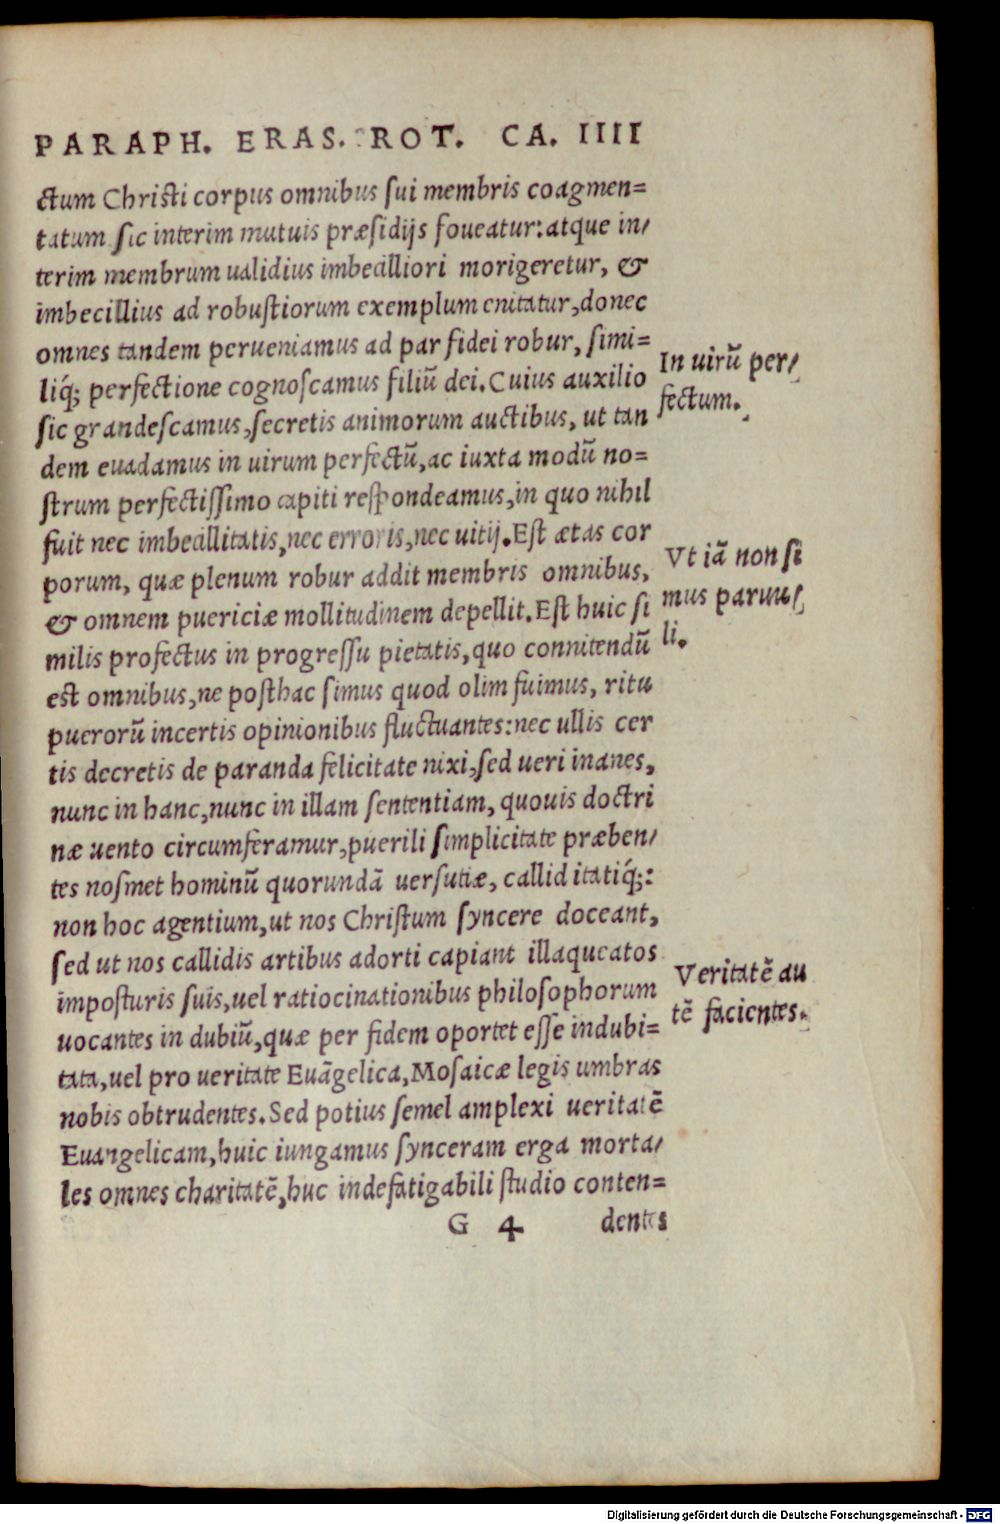 PARAPH. ERAS. ROT. CA. IIII
ctum Christi corpus omnibus sui membris coagmen=
tatum sic interim mutuis præsidijs foueatur: atque in/
terim membrum ualidius imbecilliori morigeretur, &
imbecillius ad robustiorum exemplum enitatur, donec
omnes tandem perueniamus ad par fidei robur, simi=
liq́; perfectione cognoscamus filiũ dei. Cuius auxilio
sic grandescamus, secretis animorum auctibus, ut tan
dem euadamus in uirum perfectũ, ac iuxta modũ no=
strum perfectissimo capiti respondeamus, in quo nihil
fuit nec imbecillitatis, nec erroris, nec uitij. Est ætas cor
porum, quæ plenum robur addit membris omnibus,
& omnem puericiæ mollitudinem depellit. Est huic si
milis profectus in progressu pietatis, quo connitendũ
est omnibus, ne posthac simus quod olim fuimus, ritu
puerorũ incertis opinionibus fluctuantes: nec ullis cer
tis decretis de paranda felicitate nixi, sed ueri inanes,
nunc in hanc, nunc in illam sententiam, quouis doctri
næ uento circumferamur, puerili simplicitate præben/
tes nosmet hominũ quorundã uersutiæ, calliditatiq́;:
non hoc agentium, ut nos Christum syncere doceant,
sed ut nos callidis artibus adorti capiant illaqueatos
imposturis suis, uel ratiocinationibus philosophorum
uocantes in dubiũ, quæ per fidem oportet esse indubi=
tata, uel pro ueritate Euãgelica, Mosaicæ legis umbras
nobis obtrudentes. Sed potius semel amplexi ueritatẽ
Euangelicam, huic iungamus synceram erga morta/
les omnes charitatẽ, huc indefatigabili studio conten=
G 4 dentes
In uirũ per/
fectum.
Vt iã non si
mus paruu/
li.
Veritatẽ au
tẽ facientes.
Digitalisierung gefördert durch die Deutsche Forschungsgemeinschaft - DFG